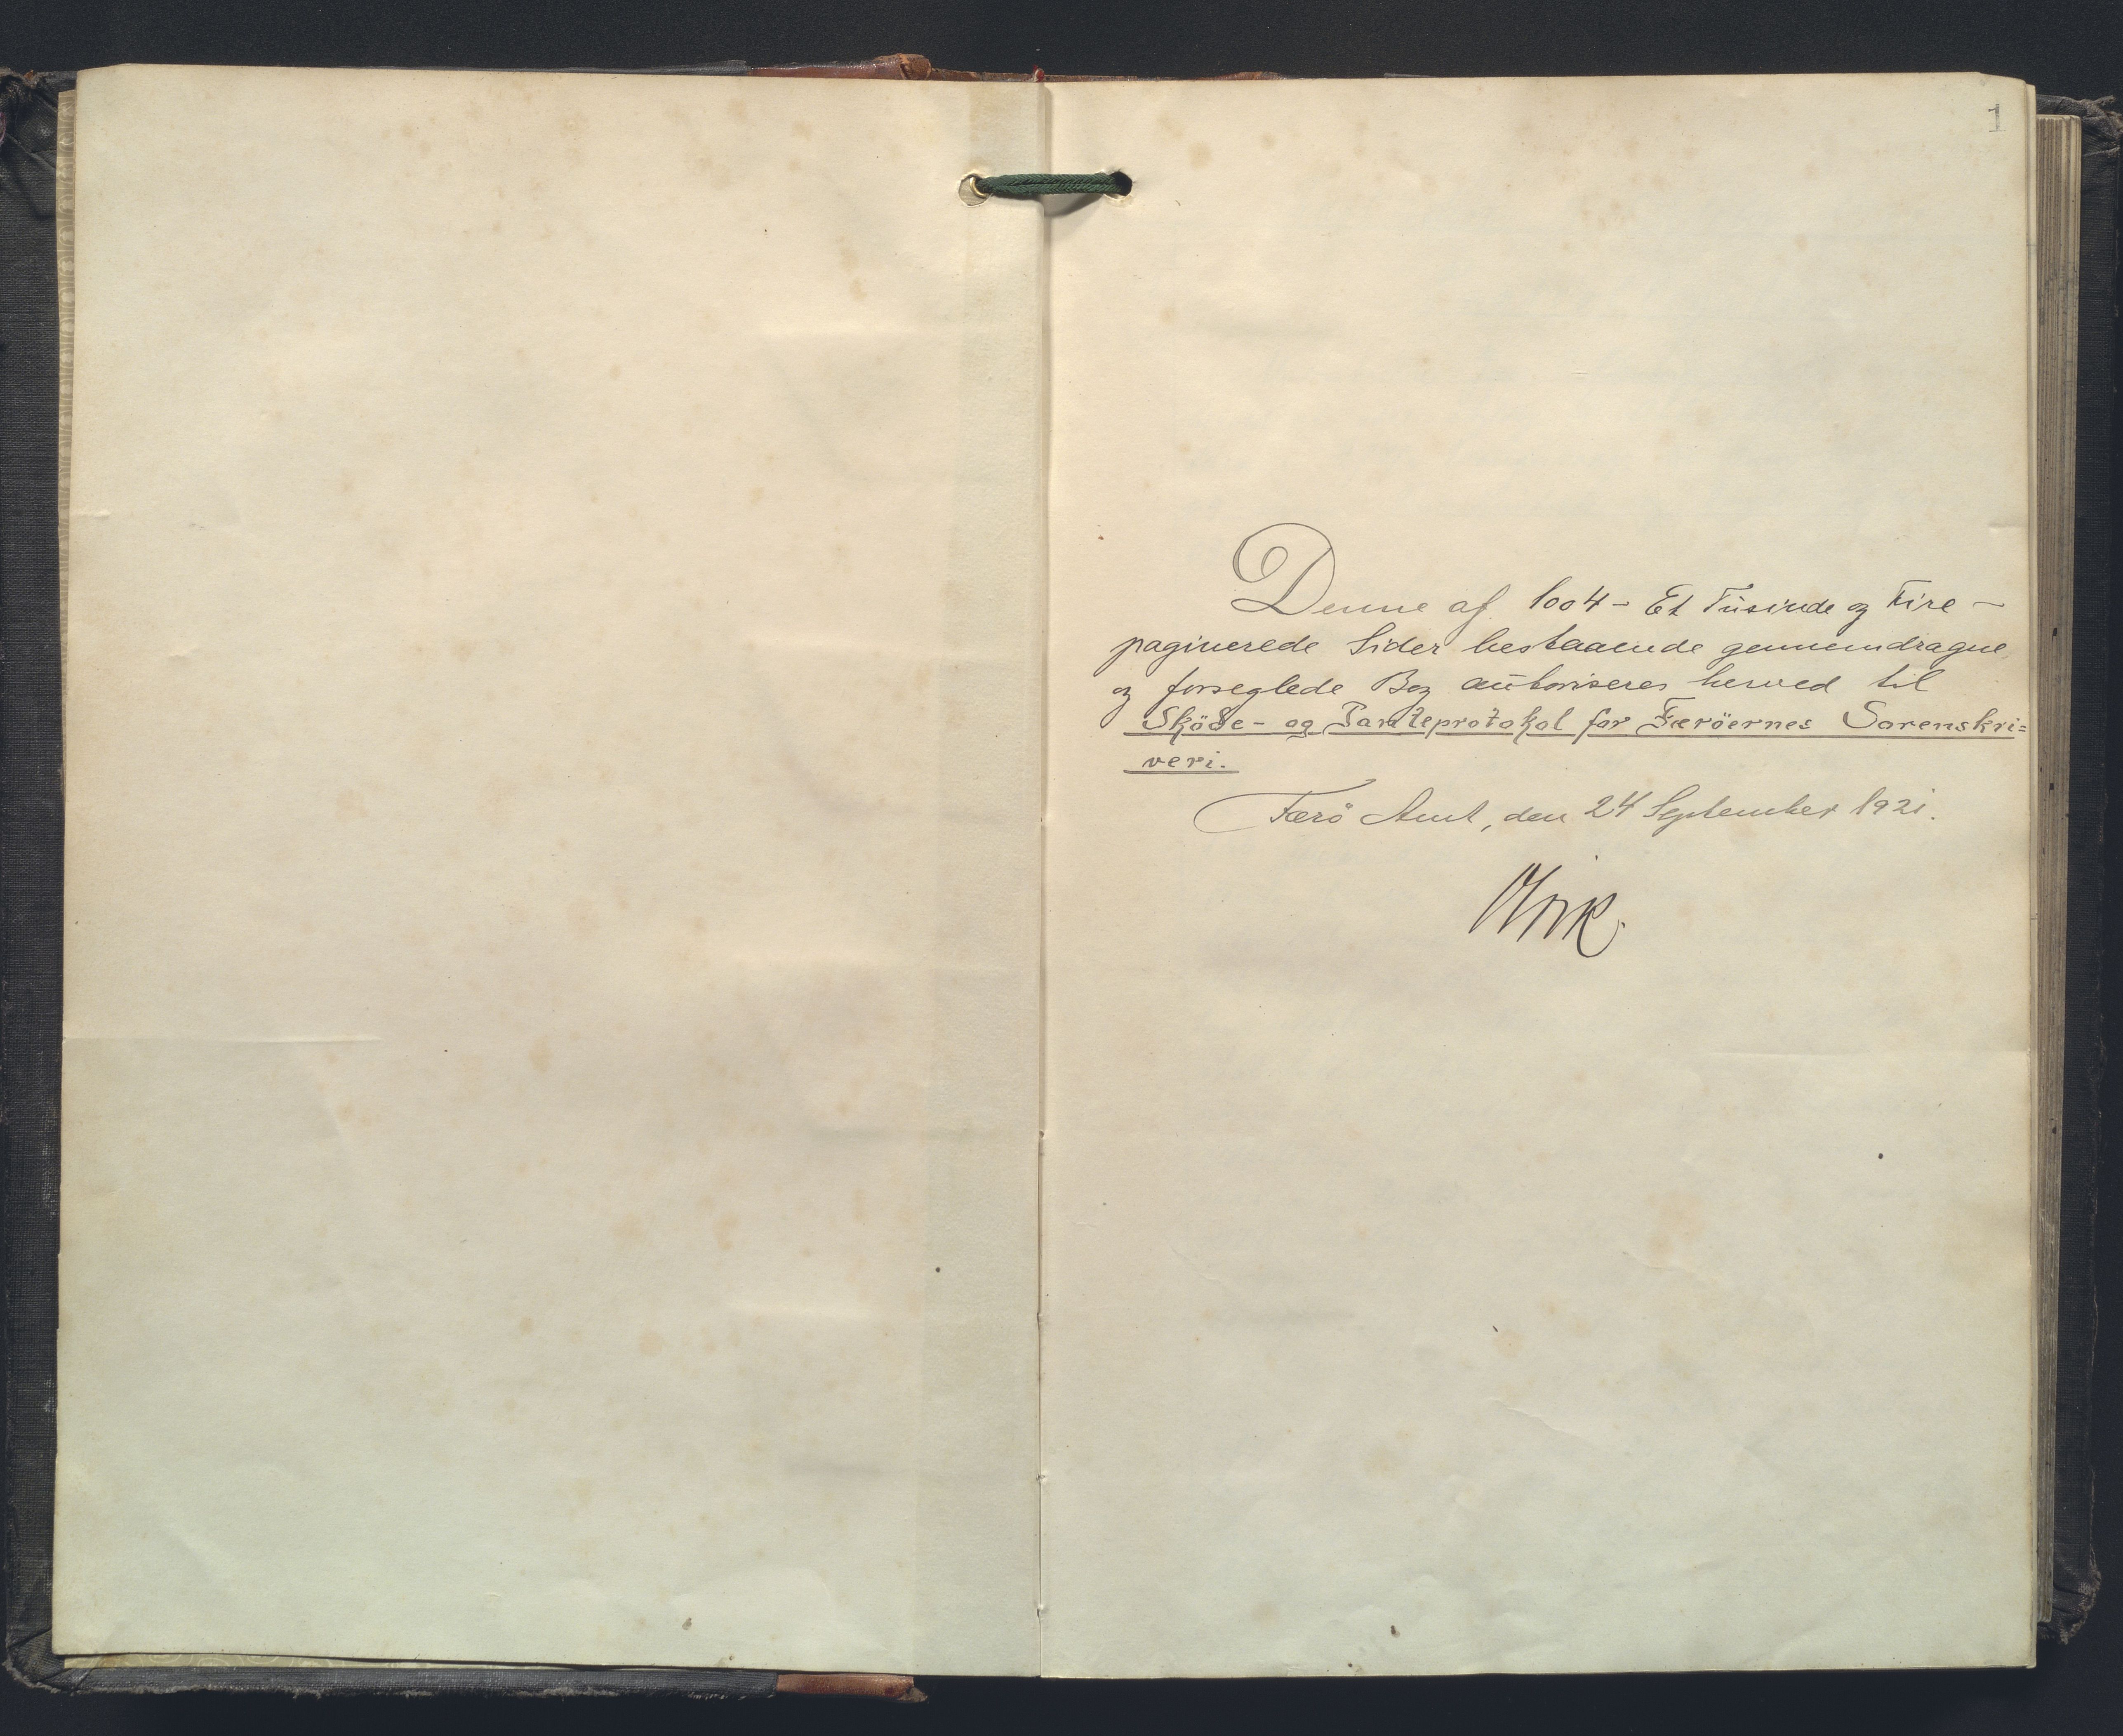 1
Denne af 1004 - Et Tusinde og Fire -
paginerede Sider bestaaende gennemdragne
og forseglede Bog autoriseres herved til
Sköde- og Panteprotokol for Færöernes Sorenskri=
veri.
Færö Amt, den 24 September 1921.